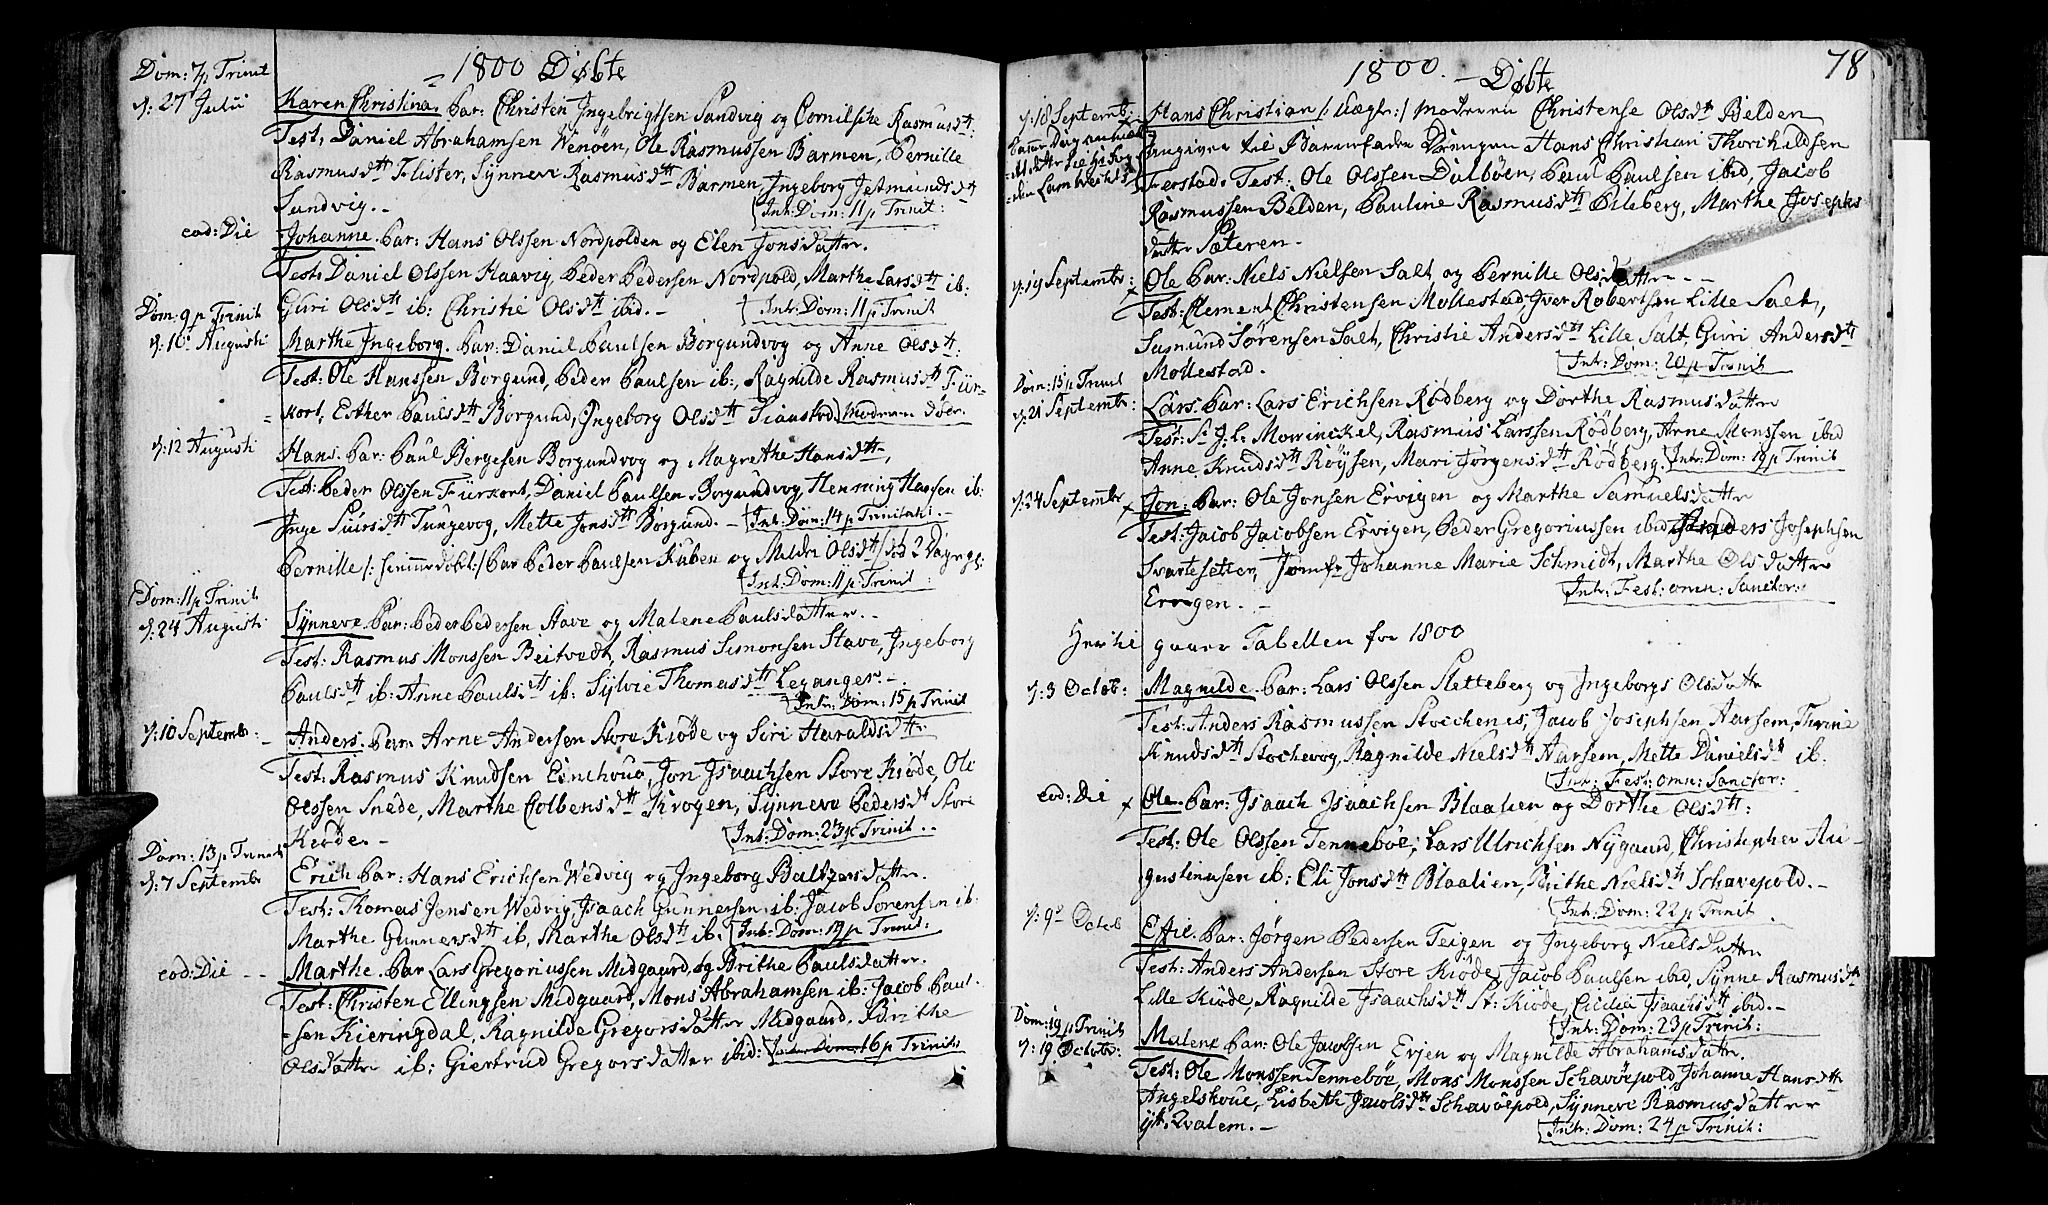 = 1800 Döbte
Dom: 7 p Trinit
d: 27 Julii
Karen Christina. Par: Christen Ingebrigtsen Sandvig og Cornilsche Rasmusdtt:
Test: Daniel Abrahamsen Wenöen, Ole Rasmussen Barmen, Pernille
Rasmusdtt Flister, Synneve Rasmusdtt Barmen, Ingeborg Jetmundsdtt
Sandvig. –
Intr: Dom: 11 p Trinit:
eod: Die
Johanne. Par: Hans Olssen Nordpolden og Elen Jonsdatter.
Test: Daniel Olssen Haavig, Peder Pedersen Nordpold, Marthe Larsdtt ib:
Guri Olsdtt ib: Christie Olsdtt ibid. –
Intr: Dom: 11 p Trinit
Dom: 9 p Trinit
d: 10 Augusti
Marthe Ingeborg. Par: Daniel Paulsen Borgundvog og Anne Olsdtt:
Test: Ole Hanssen Borgund, Peder Paulsen ib:, Ragnilde Rasmusdtt Fiür-
= kort, Esther Paulsdtt Borgund, Ingeborg Olsdtt Moderen döer.
d: 12 Augusti
Hans. Par: Paul Bergesen Borgundvog og Magrethe Hansdtt,
Test: Peder Olssen Fiurkort, Daniel Paulsen Borgundvog, Henning Hansen ib:
Inge Siursdtt Tungevog, Mette Jonsdtt Borgund. –
Intr: Dom: 14 p Trinitat: –
Pernille /: hiemmedöbt :/ Par Peder Paulsen Kuben og Meldri Olsdtt / död 2 Dage gl:
Intr: Dom: 11 p Trinit:
Dom: 11 p Trinit
d: 24 Augusti
Synneve Par: Peder Pedersen Stave og Malene Paulsdatter. –
Test: Rasmus Monssen Beitvedt, Rasmus Simonsen Stave, Ingeborg
Paulsdtt ib: Anne Paulsdtt ib: Sylvie Thomasdtt Leganger –.
Intr: Dom: 15 p Trinit
d: 10 Septembr: –
Anders. Par: Arne Andersen Store Kiöde og Siri Haraldsdtt:
Test: Rasmus Knudsen, Jon Isaachsen Store Kiöde, Ole
Olssen Snede, Marthe Colbensdtt Krogen, Synneve Pedersdt Store
Kiöde. –
Intr: Dom: 23 p Trinit –.
Dom: 13 p Trinit
d: 7 Septembr
Erich Par: Hans Erichsen Wedvig og Ingeborg Baltzersdatter.
Test: Thomas Jensen Wedvig, Isaach Gunnersen ib: Jacob Sorensen ib.
Marthe Gunnersdtt ib, Marthe Olsdtt ib:
Intr: Dom: 19 p Trinit:
eod: Die – –
Marthe. Par Lars Gregoriussen Midgaard, og Brithe Paulsdatter.
Test: Christen Ellingsen Midgaard, Mons Abrahamsen ib: Jacob Paul-
= sen Kieringdal, Ragnilde Gregorsdatter Midgaard. Brithe
Olsdatter ib: Giertrud Gregorsdatter ibid:
Intr: Dom: 16 p Trinit:
1800. – Döbte
78
d: 18 Septembr:
Hans Christian /: Uægte :/ Moderen Christense Olsdtt Belden
angiver til Barnefader Drengen Hans Christian Thorchildsen
Ferstad. Test: Ole Olssen Dalböen, Paul Paulsen ibid, Jacob
Rasmussen Belden, Pauline Rasmusdtt Pileberg, Marthe Josephs
datter Sæteren –
d: 19 Septembr: x
Ole Par: Niels Nielsen Salt og Pernille Olsdatter –
Test: Clement Christensen Mollestad, Iver Robertsen Lille Salt,
Samund Sörensen Salt, Christie Andersdtt Lille Salt, Guri Andersdtt
Mollestad.
Intr: Dom: 20 p Trinit
Dom: 15 p Trinit
d: 21 Septembr:
Lars. Par: Lars Erichsen Rödberg og Dorthe Rasmusdatter
Test: Sr J. L. Mowinckel, Rasmus Larssen Rödberg, Arne Monssen ibid
Anne Knudsdtt Röysen, Mari Jörgensdtt Rödberg.
Intr: Dom: 19 p Trinit
d: 24 Septembr x
Jon: Par: Ole Jonsen Ervigen og Marthe Samuelsdatter
Test: Jacob Jacobsen Ervigen, Peder Gregoriussen ibid Anders Josephsen
Svartesetter, Jomfr Johanne Marie Schmidt, Marthe Olsdatter
Ervigen. –
Intr: Fest: omn: Sanctor:
Hertil gaaer Tabellen for 1800
d: 3 Octob:
Magnilde. Par: Lars Olssen Sletteberg og Ingeborg Olsdatter
Test: Anders Rasmussen Stochenes, Jacob Josephsen Aarsem, Thrine
Knudsdtt Stochevog, Ragnilde Nielsdtt Aarsem, Mette Danielsdtt ib.
Intr: Fest: omn: Sanctor:
eod: Die x
Ole. Par: Isaach Isaachsen Blaalien og Dorthe Olsdtt:
Test: Ole Olssen Tenneböe, Lars Ulrichsen Nygaard, Christopher Au-
gustinusen ib: Eli Jonsdtt Blaalien, Brithe Nielsdtt Schavepold. –
Intr: Dom: 22 p Trinit
d: 9de Octob
Effie. Par: Jörgen Pedersen Teigen og Ingeborg Nielsdatter
Test: Anders Andersen Store Kiöde, Jacob Paulsen ibid, Synne Rasmusdtt
Lille Kiöde, Ragnilde Isaachsdtt St: Kiöde, Cicilia Isaachsdtt ibid. –
Intr: Dom: 23 p Trinit:
Dom: 19 p Trinit
d: 19 Octobr:
Malene Par: Ole Jacobsen Ervien og Magnilde Abrahamsdatter.
Test: Ole Monssen Tenneböe, Mons Monssen Schavöepold, Johanne Hansdtt
Angelskoue, Lisbeth Jacobsdtt Schavöepold, Synneve Rasmusdatter
yt: Qvalem. –
Intr: Dom: 24 p Trinit: